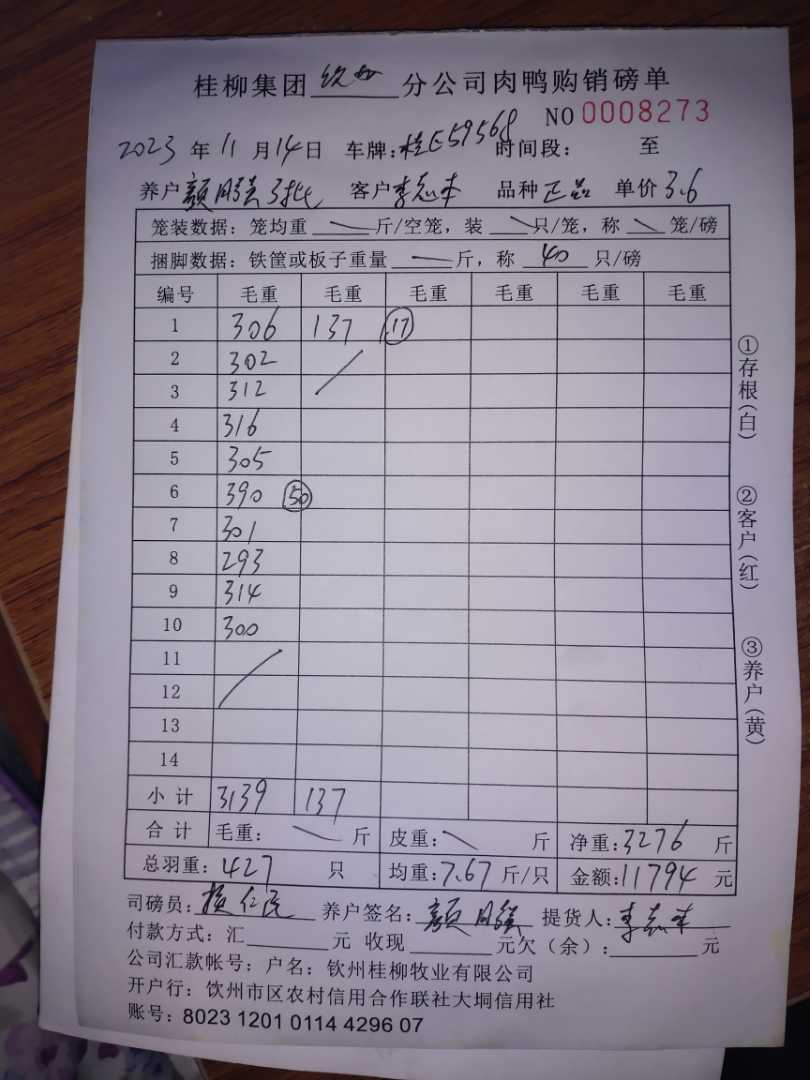 桂柳集团 钦州 分公司肉鸭购销磅单
NO 0008273
2023 年 11 月 14 日 车牌: 桂E59568 时间段: 至
养户 颜 3批 客户 李志 品种 正品 单价 3.6
笼装数据: 笼均重 斤/空笼, 装 只/笼, 称 笼/磅
捆脚数据: 铁筐或板子重量 斤, 称 40 只/磅
编号 毛重 毛重 毛重 毛重 毛重 毛重
1 306 137 17
2 302
3 312
4 316
5 305
6 390 50
7 301
8 293
9 314
10 300
11
12
13
14
小计 3139 137
合计 毛重: 斤 皮重: 斤 净重: 3276 斤
总羽重: 427 只 均重: 7.67 斤/只 金额: 11794 元
司磅员: 养户签名: 颜 提货人: 李志
付款方式: 汇 元 收现 元欠(余): 元
公司汇款帐号: 户名: 钦州桂柳牧业有限公司
开户行: 钦州市区农村信用合作联社大垌信用社
账号: 8023 1201 0114 4296 07
①存根(白)
②客户(红)
③养户(黄)